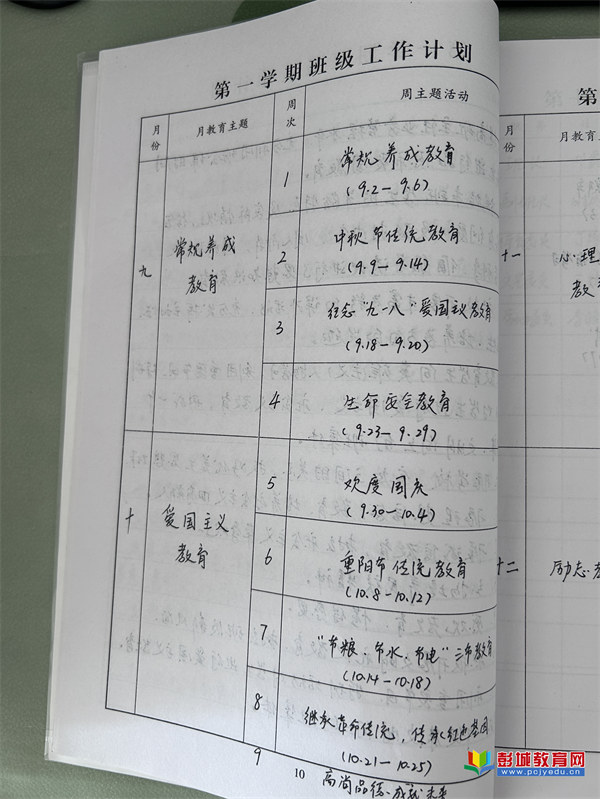 第一学期班级工作计划
月份
月教育主题
周次
周主题活动
九
常规养成
教育
1
常规养成教育
(9.2-9.6)
2
中秋节传统教育
(9.9-9.14)
3
纪念“九一八”爱国主义教育
(9.18-9.20)
4
生命安全教育
(9.23-9.29)
十
爱国主义
教育
5
欢度国庆
(9.30-10.4)
6
重阳节传统教育
(10.8-10.12)
7
“节粮、节水、节电”三节教育
(10.14-10.18)
8
继承革命传统,传承红色基因
(10.21-10.25)
9
高尚品德·成就未来
10
第
月份
月教
十一
心理
教
十二
励志
彭城教育网
www.pcjyedu.cn